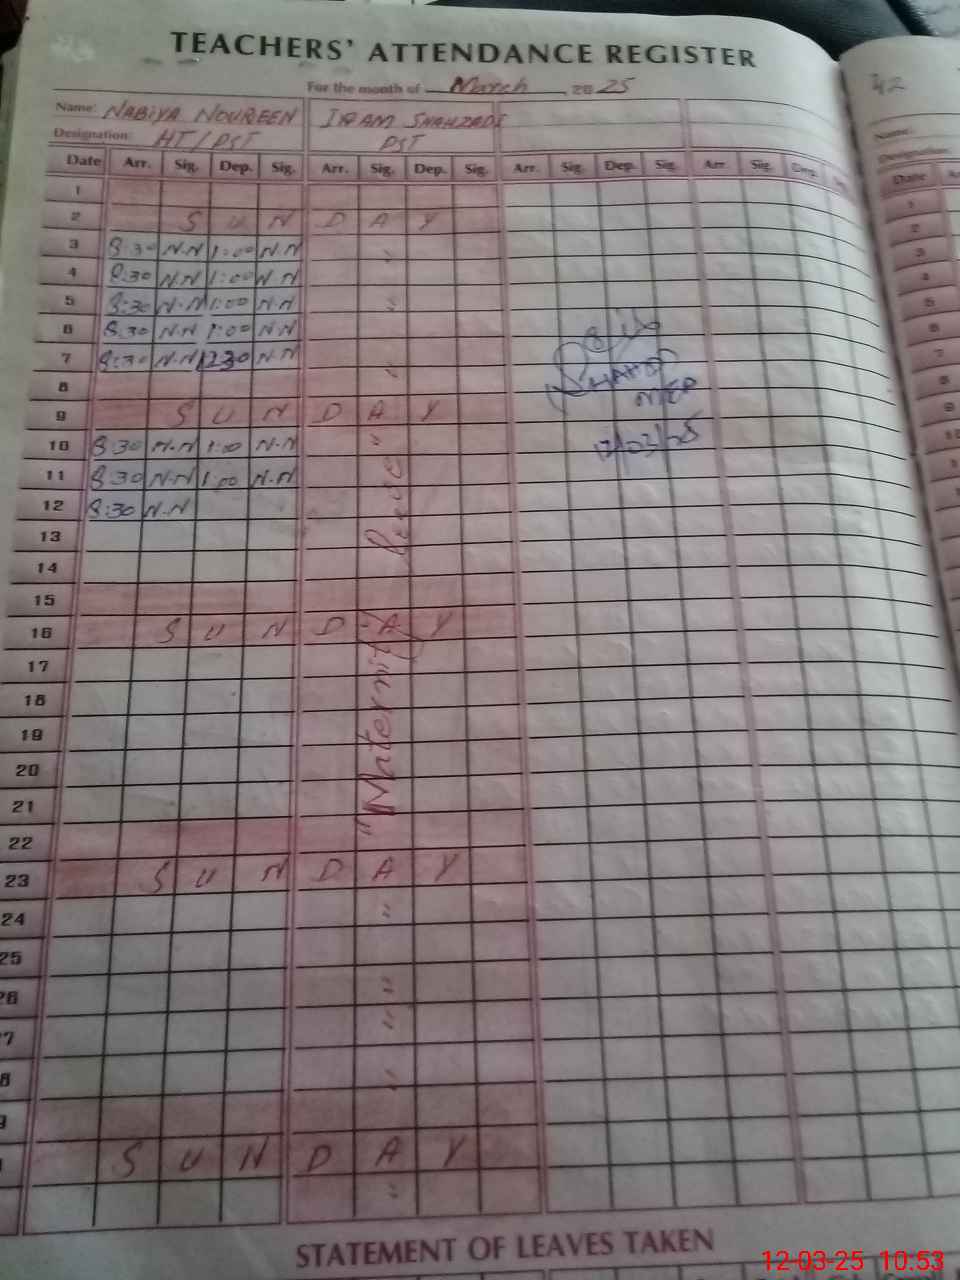 TEACHERS' ATTENDANCE REGISTER
For the month of March, 2025
42
Name: NABIYA NOUREEN IRAM SHAHZADI
Name:
Designation: HT/PST PST
Designation:
Date Arr. Sig. Dep. Sig. Arr. Sig. Dep. Sig. Arr. Sig. Dep. Sig. Arr. Sig. Dep.
Date
1
2 S U N D A Y
3 8:30 N.N 1:00 N.N "
4 8:30 N.N 1:00 N.N
5 8:30 N.N 1:00 N.N "
6 8:30 N.N 1:00 N.N
7 8:30 N.N 12:30 N.N "
8
9 S U N D A Y
10 8:30 N.N 1:00 N.N "
11 8:30 N.N 1:00 N.N
12 8:30 N.N
13
14
15
16 S U N D A Y
17
18
19
20
21
22
23 S U N D A Y
24 "
25
26 "
"
"
S U N D A Y
"
"Maternity leave
12/03/25
1
2
3
4
5
6
7
8
9
10
STATEMENT OF LEAVES TAKEN
12-03-25 10:53